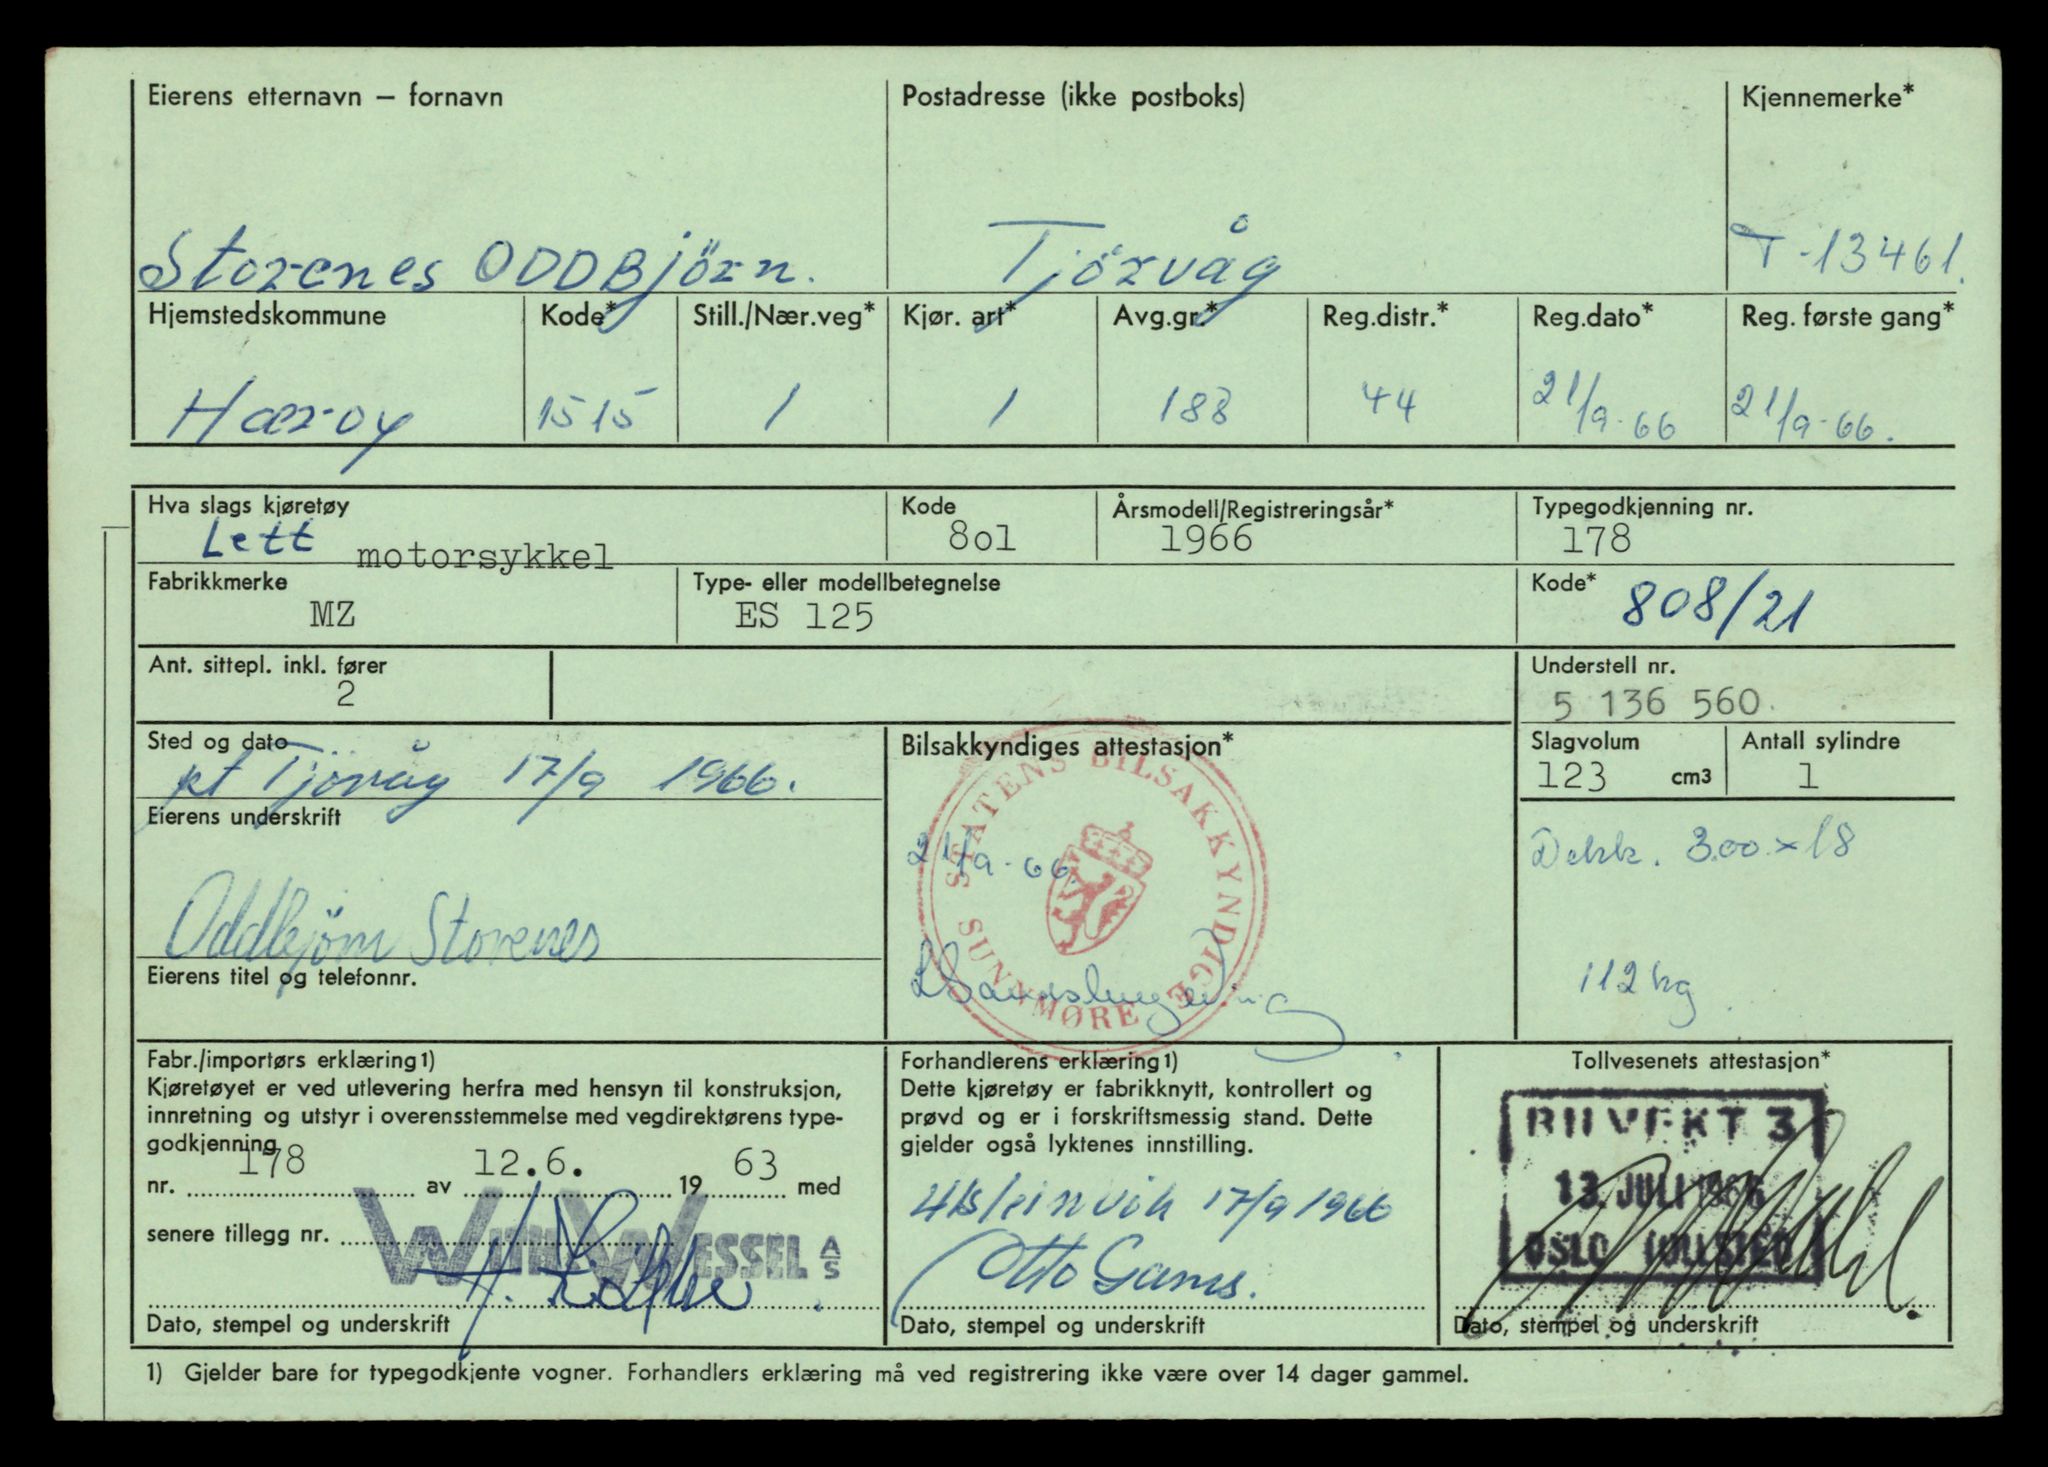 Eierens etternavn – fornavn Postadresse (ikke postboks) Kjennemerke*
Storenes ODDBjörn. Tjörvåg T-13461.
Hjemstedskommune Kode* Still./Nær.veg* Kjør. art* Avg.gr.* Reg.distr.* Reg.dato* Reg. første gang*
Hærøy 1515 1 1 188 44 21/9-66 21/9-66.
Hva slags kjøretøy Kode Årsmodell/Registreringsår* Typegodkjenning nr.
Lett motorsykkel 8o1 1966 178
Fabrikkmerke Type- eller modellbetegnelse Kode*
MZ ES 125 808/21
Ant. sittepl. inkl. fører Understell nr.
2 5 136 560.
Sted og dato Bilsakkyndiges attestasjon* Slagvolum Antall sylindre
pt Tjörvåg 17/9 1966. 123 cm3 1
STATENS BILSAKKYNDIGE SUNNMØRE
Eierens underskrift
21/9-66. Dekk. 3.00 x 18
Oddbjörn Storenes
Eierens titel og telefonnr. 112 kg
Fabr./importørs erklæring1) Forhandlerens erklæring1) Tollvesenets attestasjon*
Kjøretøyet er ved utlevering herfra med hensyn til konstruksjon,
innretning og utstyr i overensstemmelse med vegdirektørens type-
godkjenning
nr. 178 av 12.6. 19 63 med
senere tillegg nr.
WESSEL A/S
Dato, stempel og underskrift
Dette kjøretøy er fabrikknytt, kontrollert og
prøvd og er i forskriftsmessig stand. Dette
gjelder også lyktenes innstilling.
17/9 1966
Otto Garnes.
Dato, stempel og underskrift
BILVEKT 3
13 JULI 1966
OSLO TOLLSTED
Dato, stempel og underskrift
1) Gjelder bare for typegodkjente vogner. Forhandlers erklæring må ved registrering ikke være over 14 dager gammel.